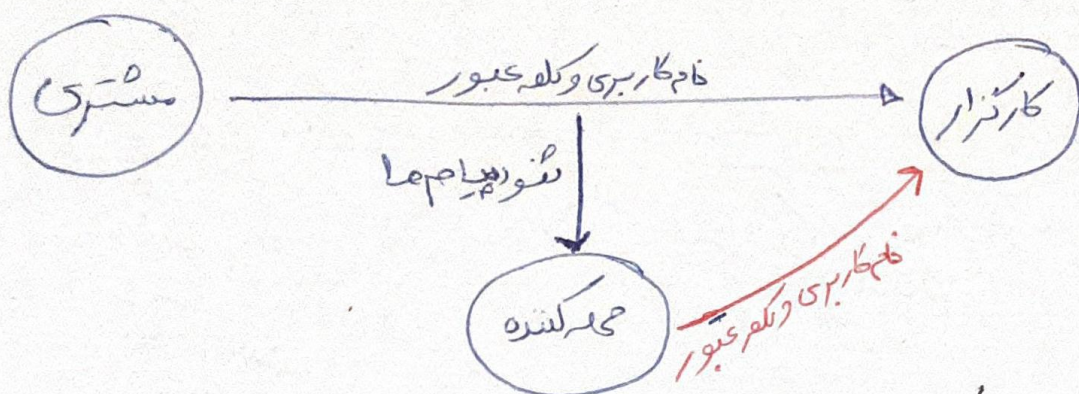 مشتری
نام کاربری و کلمه عبور
کارگزار
شنود پیام ها
حمله کننده
نام کاربری و کلمه عبور